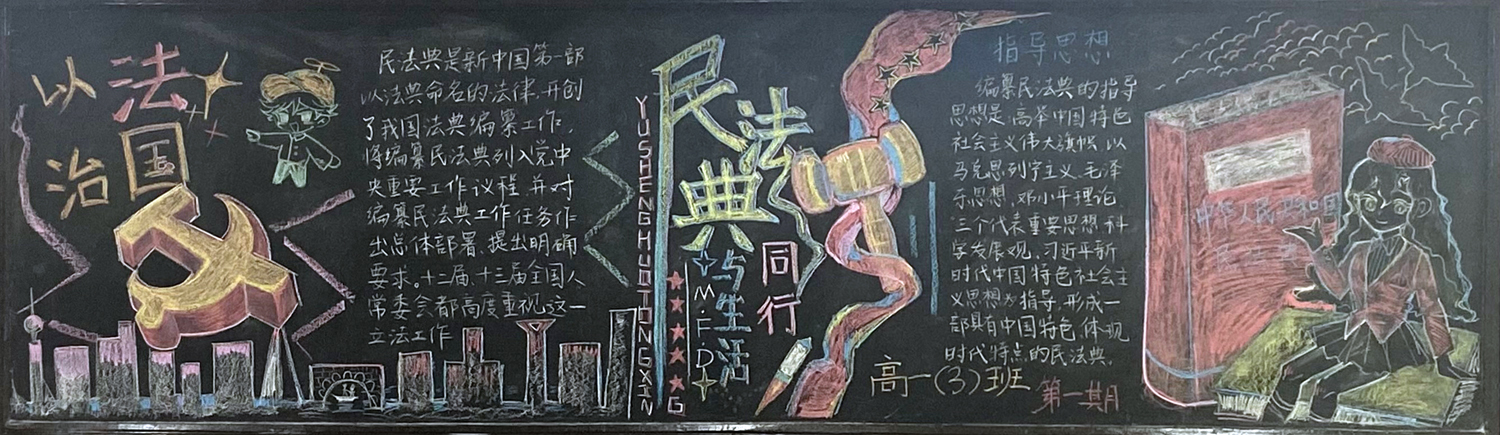 以法
治国
民法典是新中国第一部
以法典命名的法律,开创
了我国法典编纂工作,
将编纂民法典列入党中
央重要工作议程,并对
编纂民法典工作任务作
出总体部署、提出明确
要求。十二届、十三届全国人
常委会都高度重视这一
立法工作
YUSHENGHUOTONGXING
民法典
与生活
同行
M.F.D
指导思想
编纂民法典的指导
思想是:高举中国特色
社会主义伟大旗帜,以
马克思列宁主义、毛泽
东思想、邓小平理论、
"三个代表"重要思想、科
学发展观、习近平新
时代中国特色社会主
义思想为指导,形成一
部具有中国特色、体现
时代特点的民法典。
高一(3)班
第一期
中华人民共和国